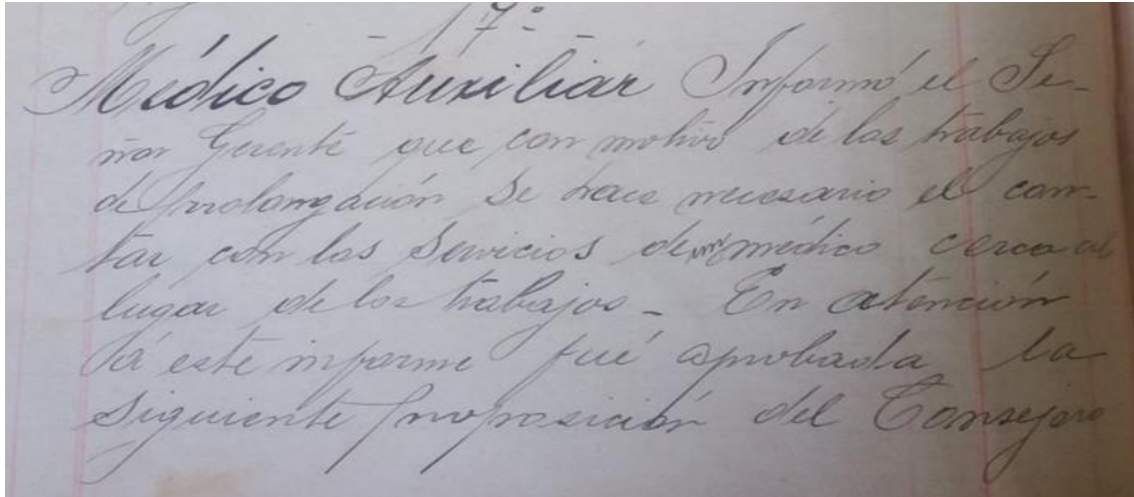 - 17º -
Médico Auxiliar Informó el Se-
ñor Gerente que con motivo de los trabajos
de prolongación se hace necesario el con-
tar con los servicios de un médico cerca al
lugar de los trabajos - En atención
á este informe fué aprobada la
siguiente proposición del Consejero